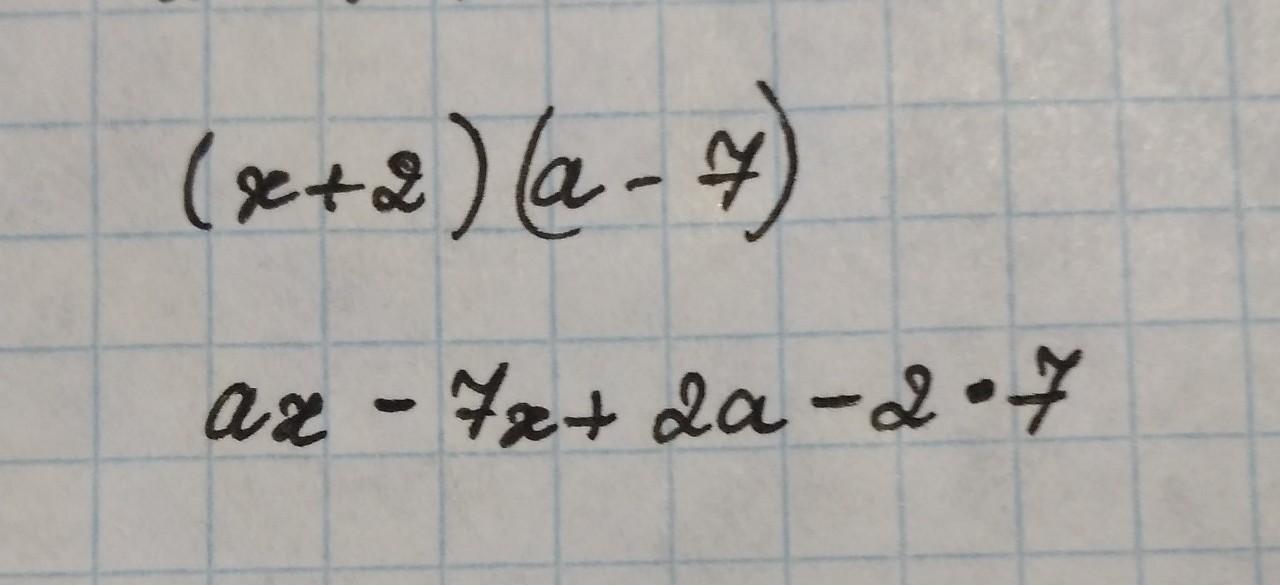 (x+2)(a-7)
ax - 7x + 2a - 2 · 7